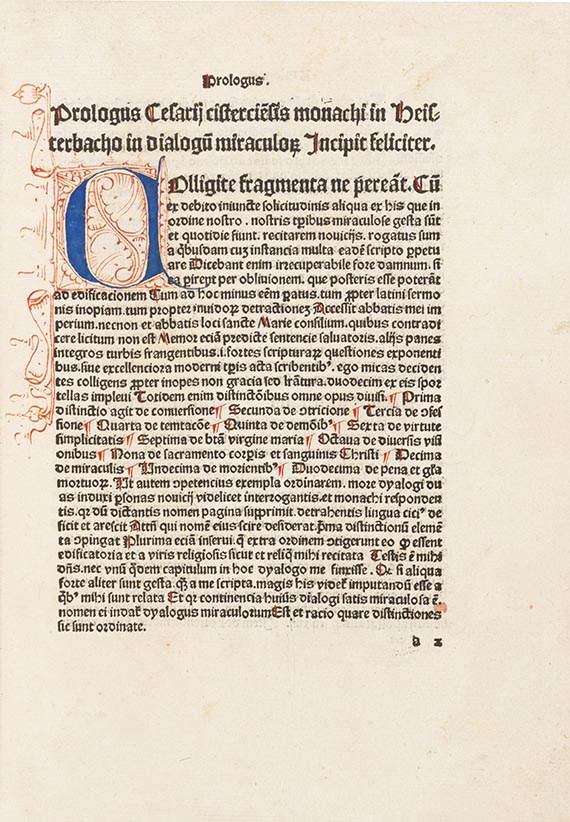 Prologus.
Prologus Cesarij cisterciẽsis monachi in Heis-
terbacho in dialogũ miraculoꝝ Incipit feliciter.
COlligite fragmenta ne pereãt. Cũ
ex debito iniuncte solicitudinis aliqua ex his que in
ordine nostro . nostris tꝑibus miraculose gesta sũt
et quotidie fiunt. recitarem novicijs. rogatus sum
a q̇busdam cuʒ instancia multa eadẽ scripto ꝑpetu
are Dicebant enim irrecuperabile fore damnum. si
ea pirẽt per obliuionem. que posteris esse poterãt
ad edificacionem Cum ad hoc minus eẽm ꝑatus. tum ꝓpter latini sermo
nis inopiam. tum propter inuidoꝝ detractiones Accessit abbatis mei im
perium. necnon et abbatis loci sancte Marie consilium. quibus contradi
cere licitum non est Memor eciã predicte sentencie saluatoris. alijs panes
integros turbis frangentibus. i. fortes scripturaꝝ questiones exponenti
bus. siue excellenciora moderni tꝑis acta scribentibꝰ. ego micas deciden
tes colligens ꝓpter inopes non gracia sed lr̃atura. duodecim ex eis spor
tellas impleui Totidem enim distinctõibus omne opus diuisi. ¶ Prima
distinctio agit de conuersione ¶ Secunda de ꝯtricione ¶ Tercia de ꝯfes
sione ¶ Quarta de temtacõe ¶ Quinta de demõibꝰ ¶ Sexta de virtute
simplicitatis ¶ Septima de btã virgine maria ¶ Octaua de diuersis visi
onibus ¶ Nona de sacramento corꝑis et sanguinis Christi ¶ Decima
de miraculis ¶ Vndecima de morientibꝰ ¶ Duodecima de pena et gl̃a
mortuoꝝ. Ut autem ꝯpetencius exempla ordinarem. more dyalogi du
as induxi ꝑsonas nouicij videlicet interrogantis. et monachi responden
tis. qꝛ dũ dictantis nomen pagina supprimit. detrahentis lingua ciciꝰ de
ficit et arescit Attñ qui nomẽ eius scire desiderat. pͥma distinctionũ elemẽ
ta ꝯpingat Plurima eciã inserui. q̃ extra ordinem ꝯtigerunt eo ꝙ essent
edificatoria et a viris religiosis sicut et reliq̃ mihi recitata Testis ẽ mihi
dñs. nec vnũ q̇dem capitulum in hoc dyalogo me finxisse. Qꝛ si aliqua
forte aliter sunt gesta. q̃ȝ a me scripta. magis his videt᷑ imputandũ esse a
q̇bꝰ mihi sunt relata Et qꝛ continencia huius dialogi satis miraculosa ẽ.
nomen ei indat᷑ dyalogus miraculorum Est et racio quare distinctiones
sic sunt ordinate.
a 2